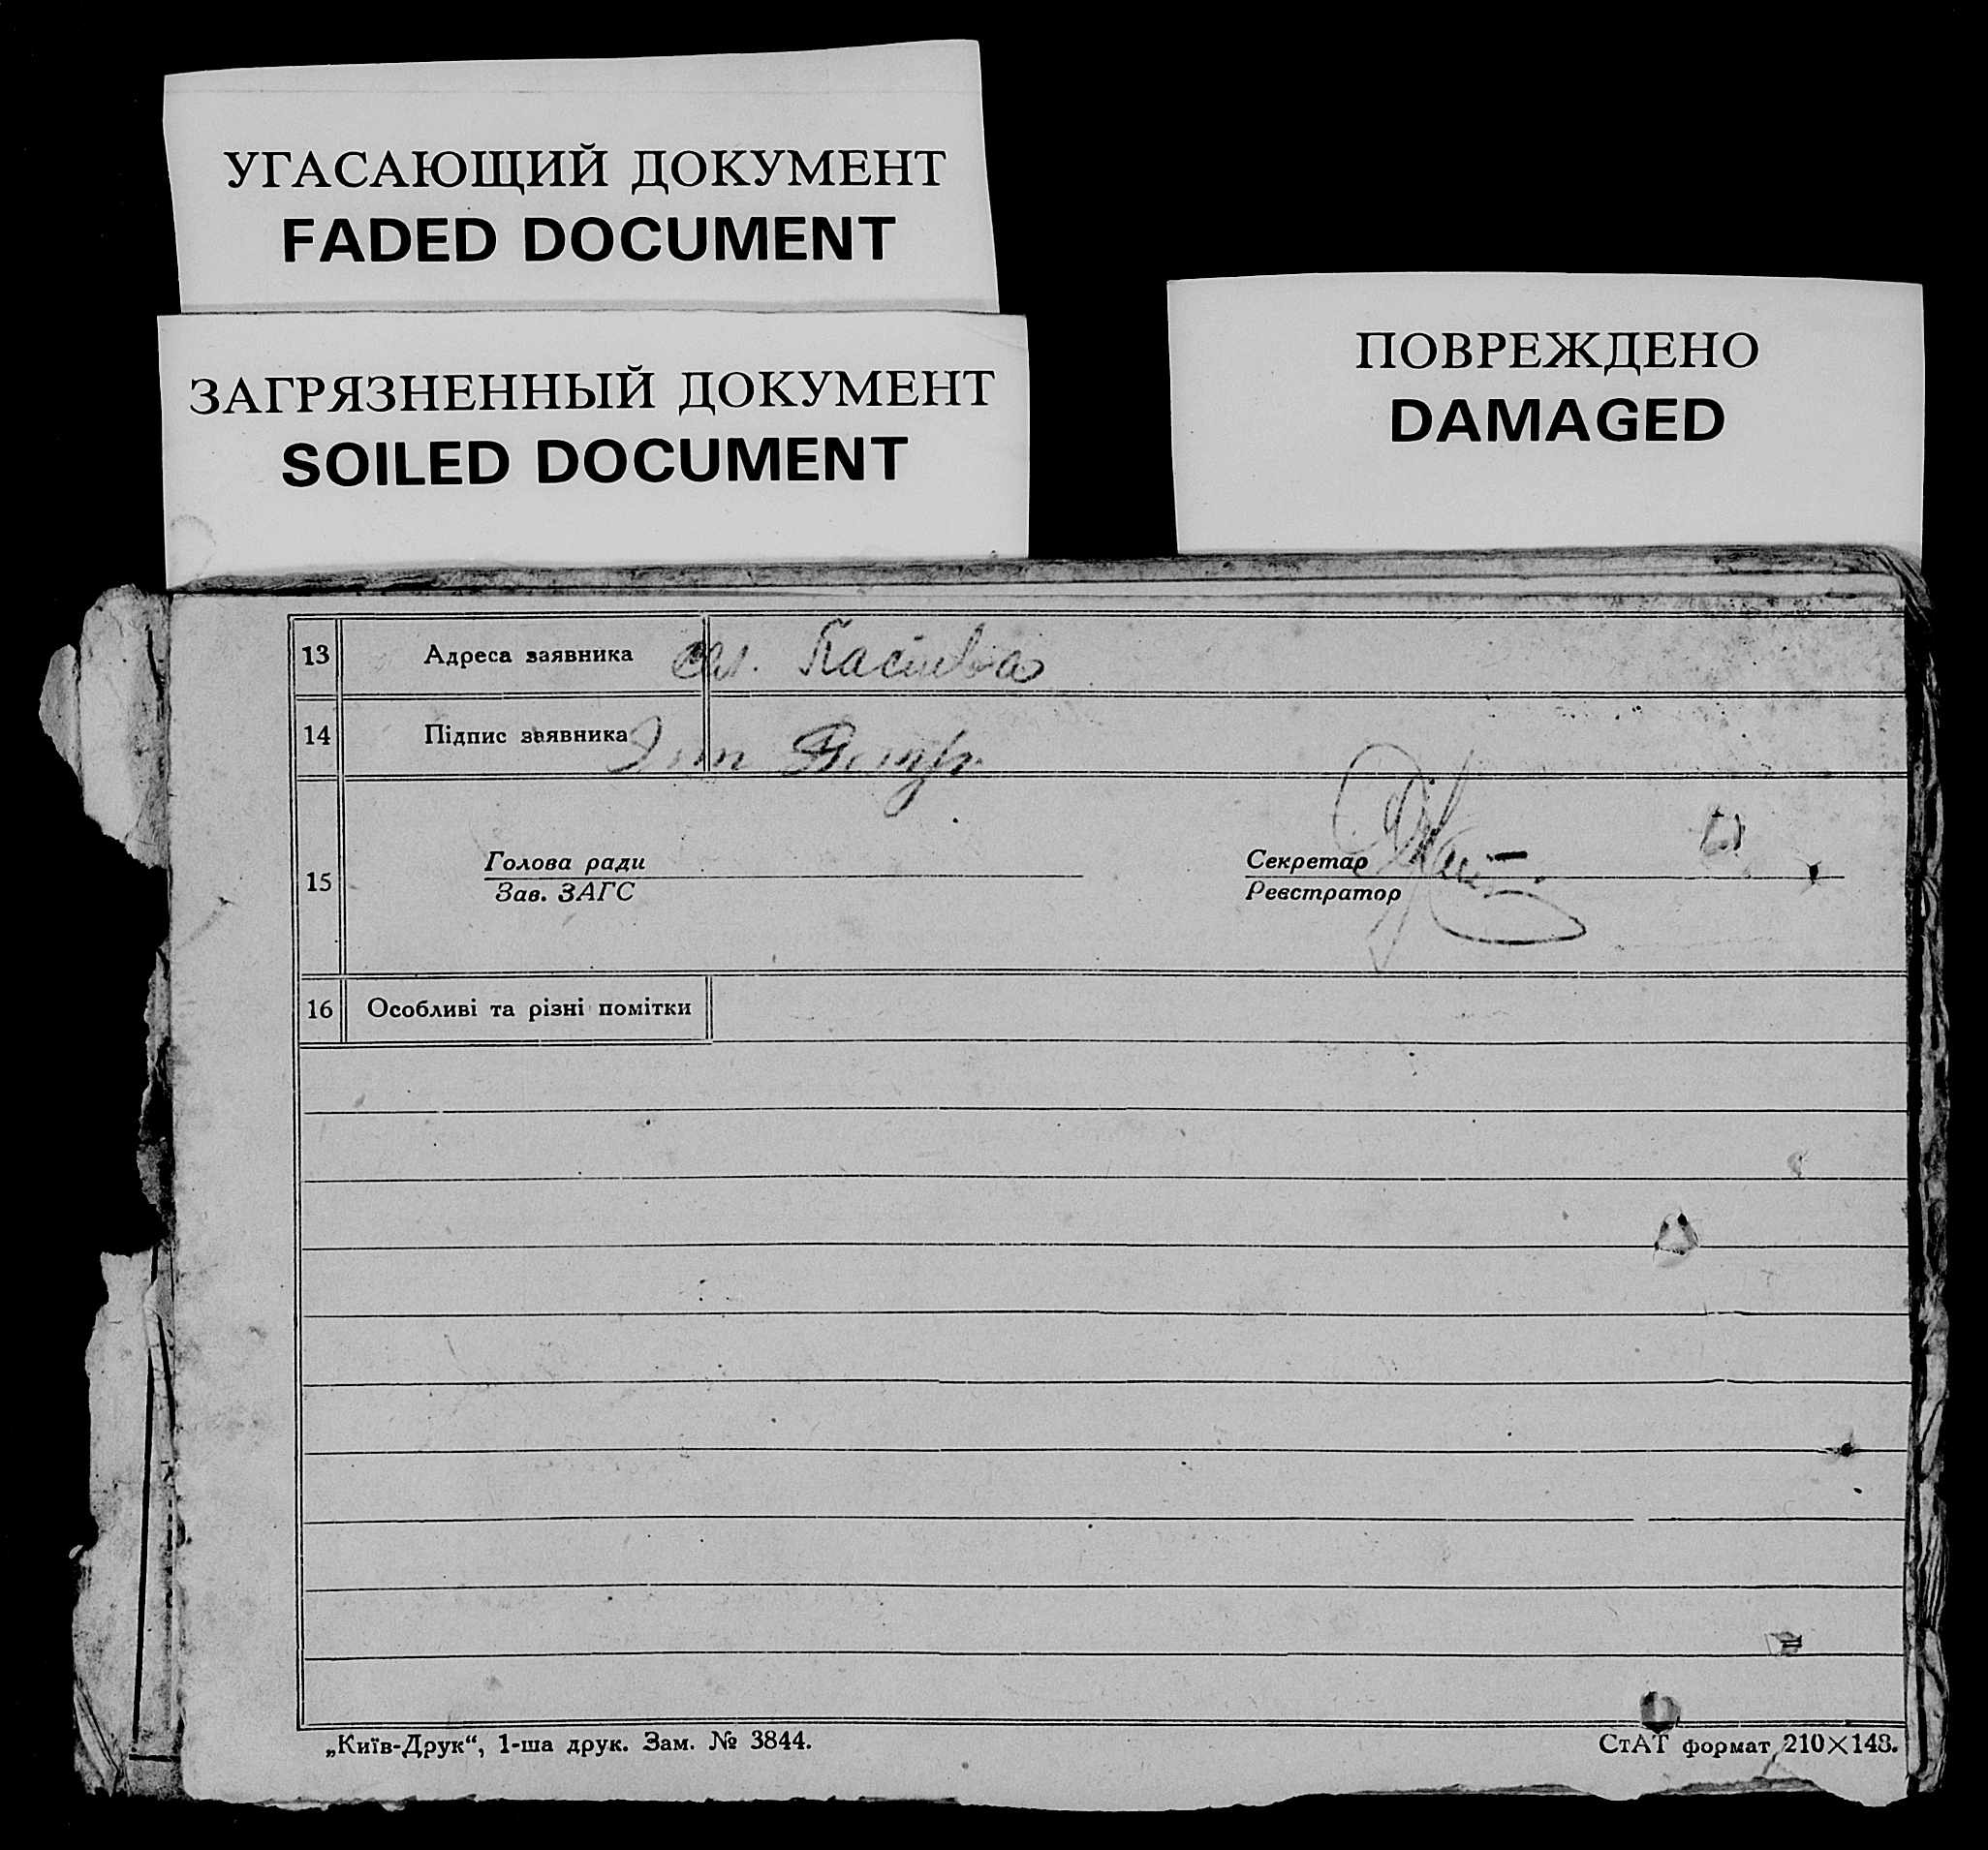 УГАСАЮЩИЙ ДОКУМЕНТ
FADED DOCUMENT
ЗАГРЯЗНЕННЫЙ ДОКУМЕНТ
SOILED DOCUMENT
ПОВРЕЖДЕНО
DAMAGED
13 Адреса заявника
14 Підпис заявника
15
Голова ради
Зав. ЗАГС
Секретар
Реєстратор
16 Особливі та різні помітки
„Київ-Друк“, 1-ша друк. Зам. № 3844.
СтАТ формат 210×148.